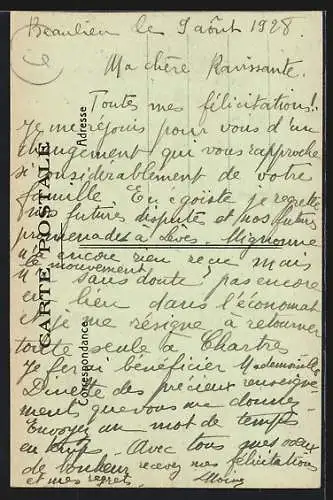 Beaulieu le 9 août 1928
Ma chère Ravissante.
Toutes mes félicitations!
Je me réjouis pour vous d'un
changement qui vous rapproche
si considérablement de votre
famille. En égoïste je regrette
nos futures disputes et nos futures
promenades à Mignonne
n'a encore rien reçu mais
le mouvement
sans doute pas encore
eu lieu dans l'économat
et je me résigne à retourner
toute seule à Chartres
Je ferai bénéficier Mademoiselle
Dinette des précieux renseigne-
ments que vous me donnez.
Envoyez un mot de temps
en temps. Avec tous mes vœux
de bonheur recevez mes félicitations
et mes regrets.
CARTE POSTALE
Correspondance
Adresse